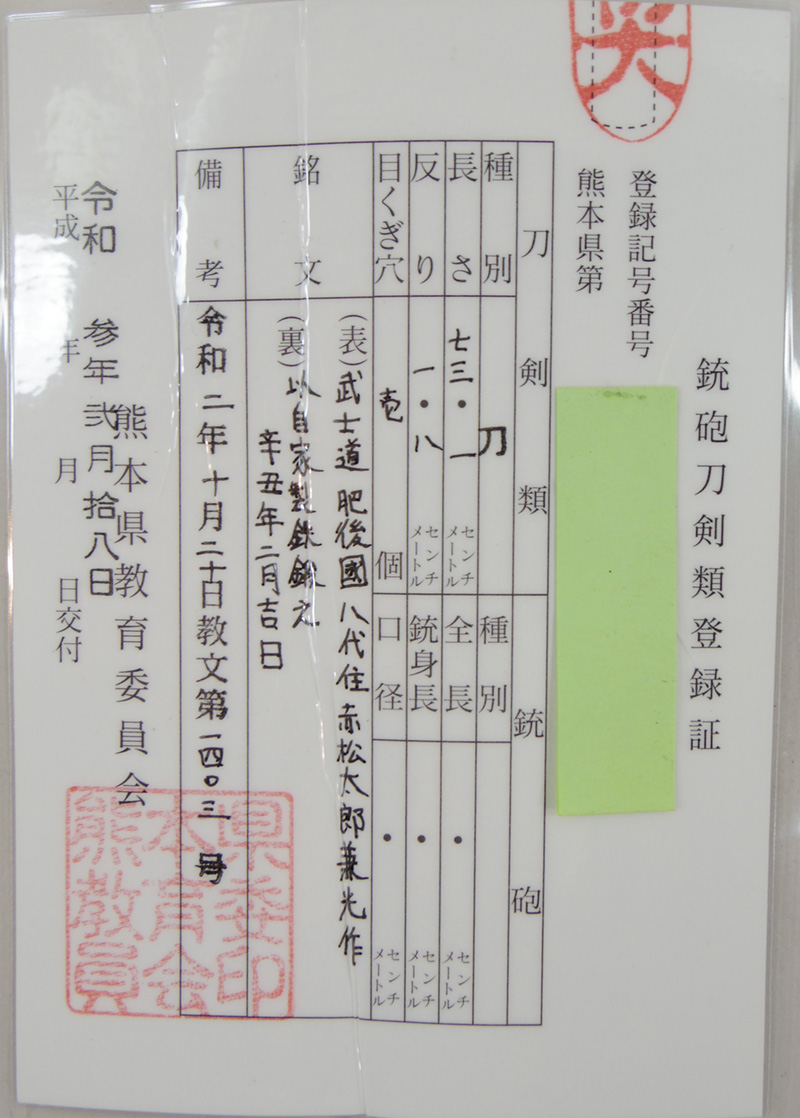 銃砲刀剣類登録証
登録記号番号
熊本県第
刀剣類
種別 刀
長さ 七三・一 センチメートル
反り 一・八 センチメートル
目くぎ穴 壱 個
銃砲
種別
全長 ・ センチメートル
銃身長 ・ センチメートル
口径 ・ センチメートル
銘文
(表)武士道 肥後國八代住赤松太郎兼光作
(裏)以自家製鉄鍛之
辛丑年二月吉日
備考
令和二年十月二十日教文第一四〇三号
熊本県教育委員会
令和 参年 弐月 拾八日
平成 年 月 日交付
熊本県教育委員会印